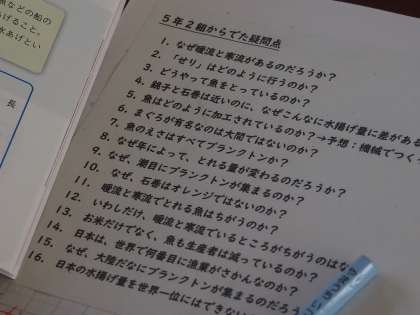 魚などの船の
げること。
水あげとい
長
5年2組からでた疑問点
1. なぜ暖流と寒流があるのだろうか？
2. 「せり」はどのように行うのか？
3. どうやって魚をとっているのか？
4. 銚子と石巻は近いのに、なぜこんなに水揚げ量に差がある
5. 魚はどのように加工されているのか？→予想：機械でつく
6. まぐろが有名なのは大間ではないのか？
7. 魚のえさはすべてプランクトンか？
8. なぜ年によって、とれる量が変わるのだろうか？
9. なぜ、潮目にプランクトンが集まるのか？
10. なぜ、石巻はオレンジではないのか？
11. 暖流と寒流でとれる魚はちがうのか？
12. いわしだけ、暖流と寒流でているところがちがうのはな
13. お米だけでなく、魚も生産者は減っているのか？
14. 日本は、世界で何番目に漁業がさかんなのか？
15. なぜ、大陸だなにプランクトンが集まるのだろう
16. 日本の水揚げ量を世界一位にはできない